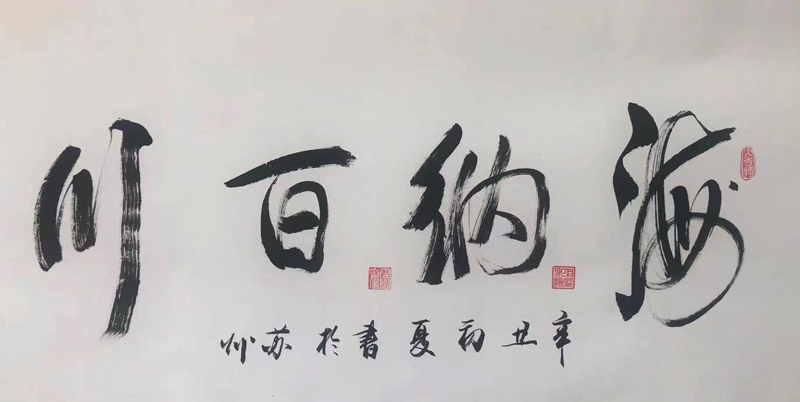 海纳百川
辛丑初夏書於苏州